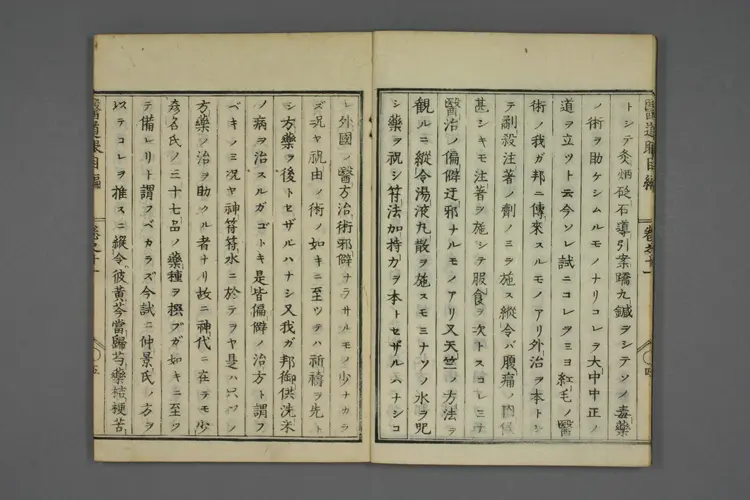 醫道眼目編 卷之十一 四
トシテ灸焫砭石導引案蹻九鍼ヲシテソノ毒藥
ノ術ヲ助ケシムルモノナリコレヲ大中中正ノ
道ヲ立ツト云今ソレ試ニコレヲミヨ紅毛ノ醫
術ノ我ガ邦ニ傳來スルモノアリ外治ヲ本トシ
テ刪殺注著ノ劑ノミヲ施ス縱令バ腹痛ノ
甚シキモ注著ヲ施シテ服食ヲ次トスコレミナ
醫治ノ偏僻迂邪ナルモノアリ又天竺ノ方法ヲ
觀ルニ縱令湯液丸散ヲ施スモミナソノ水ヲ咒
シ藥ヲ祝シ符法加持力ヲ本トセザルハナシコ
レ外國ノ醫方治術邪僻ナラサルモノ少ナカラ
ズ況ヤ祝由ノ術ノ如キニ至ツテハ祈禱ヲ先ト
シ方藥ヲ後トセザルハナシ又我ガ邦御供洗米
ノ病ヲ治スルガゴトキ是皆偏僻ノ治方ト謂フ
ベキノミ況ヤ神符符水ニ於テヲヤ是ハ只ソノ
方藥ノ治ヲ助クル者ナリ故ニ神代ニ在テモ少
彥名氏ノ三十七品ノ藥種ヲ擇ブガ如キニ至ツ
テ備レリト謂フベカラズ今試ニ仲景氏ノ方ヲ
以テコレヲ推スニ縱令彼黃芩當歸芍藥桔梗苦
醫道眼目編 卷之十一 五